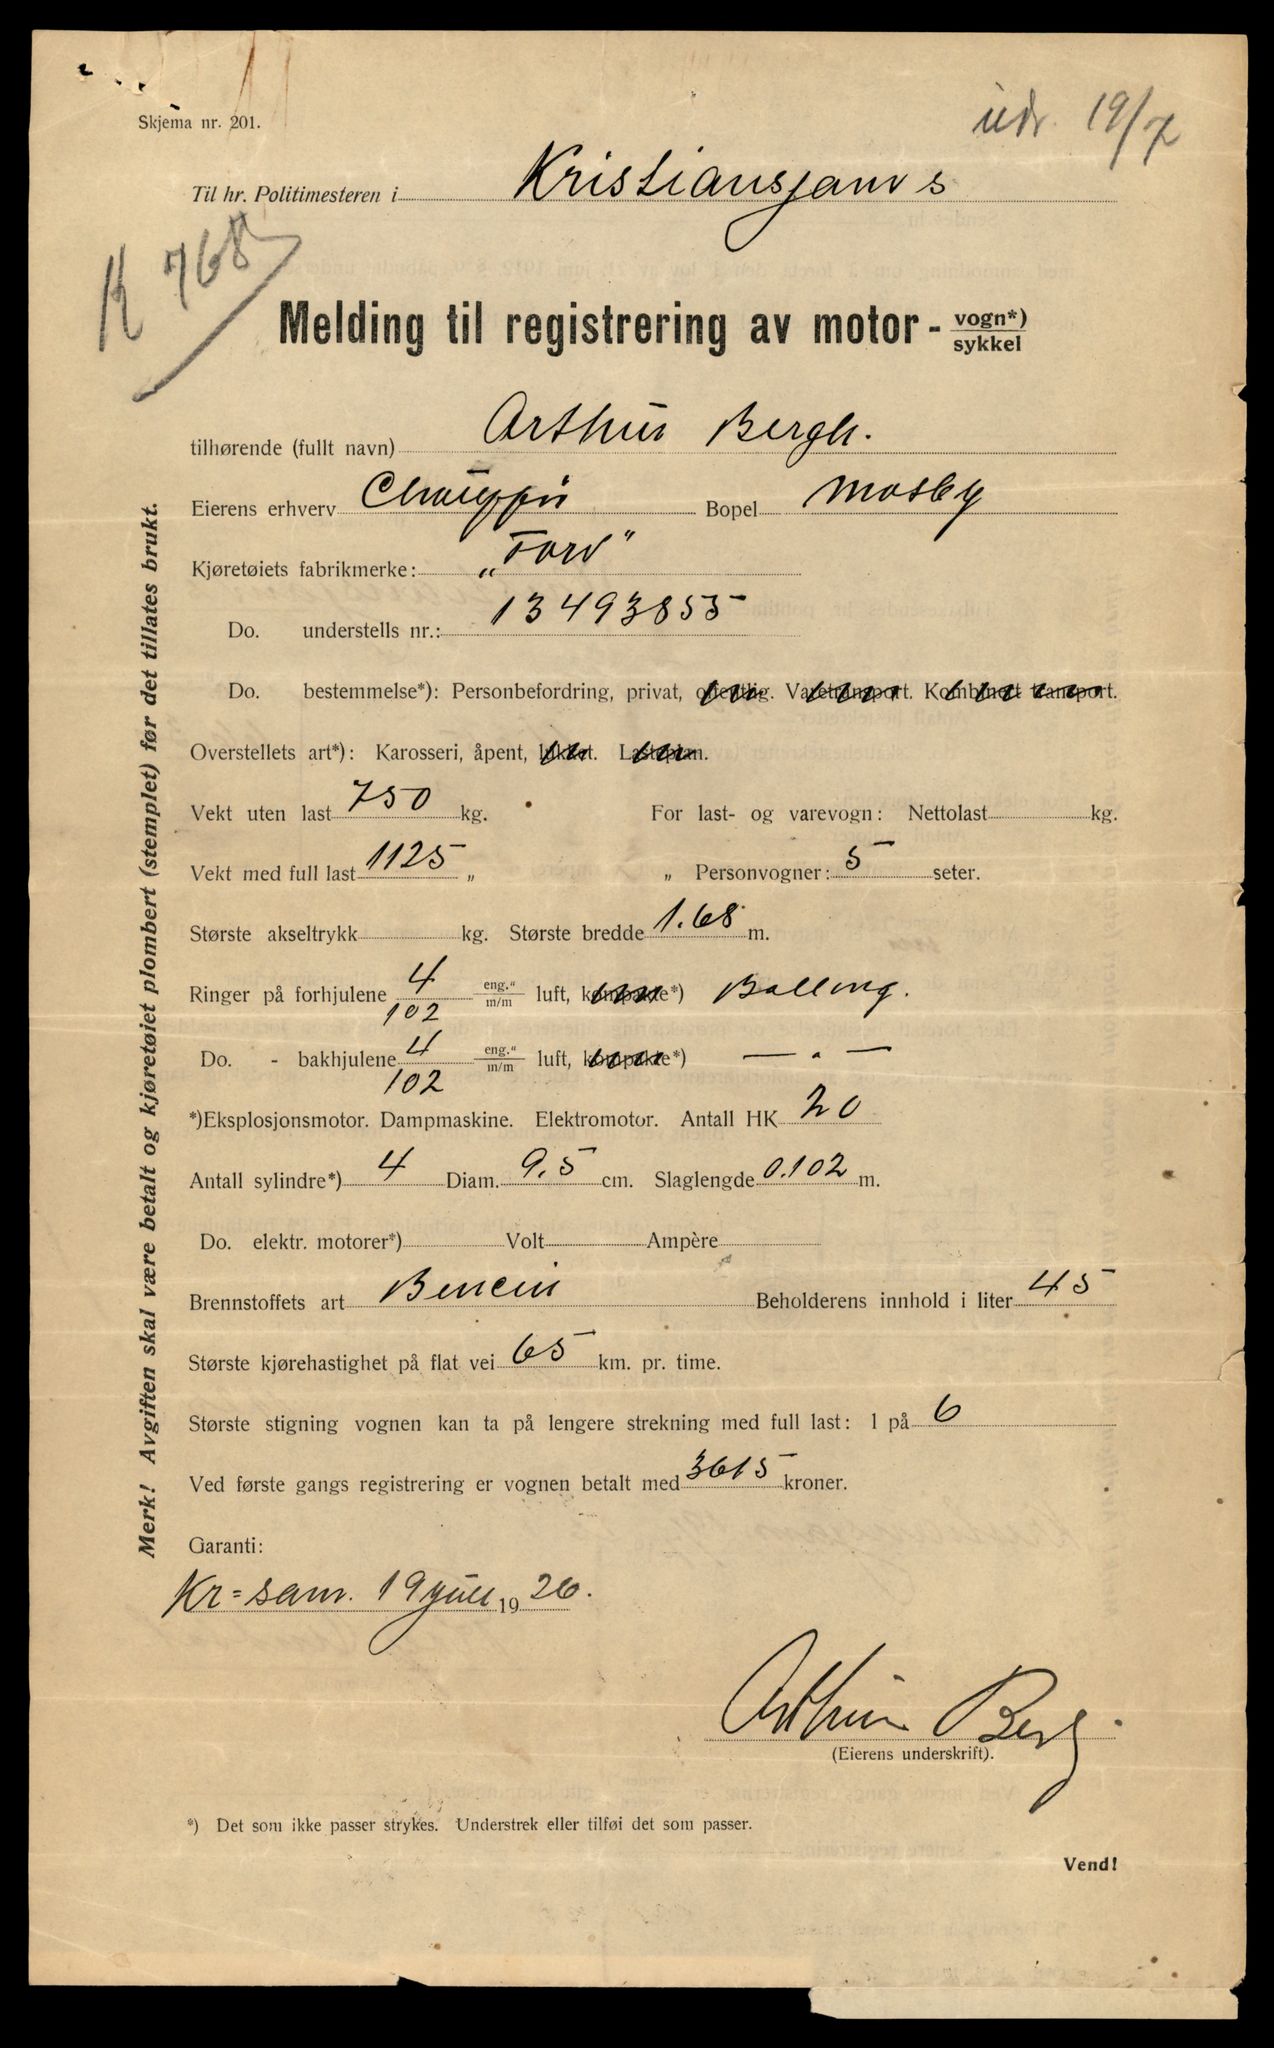 Skjema nr. 201.
udr. 19/7
Til hr. Politimesteren i Kristianssand s
K 768
Melding til registrering av motor - vogn*) sykkel
tilhørende (fullt navn) Arthur Bergh.
Eierens erhverv Chauffør Bopel Mosby
Kjøretøiets fabrikmerke: „Ford"
Do. understells nr.: 13493855
Do. bestemmelse*): Personbefordring, privat, offentlig. Varetransport. Kombinert transport.
Overstellets art*): Karosseri, åpent, lukket. Lasteplan.
Vekt uten last 750 kg. For last- og varevogn: Nettolast kg.
Vekt med full last 1125 „ „ Personvogner: 5 seter.
Største akseltrykk kg. Største bredde 1.68 m.
Ringer på forhjulene 4 eng." luft, kompakte*) Balling.
102 m/m
Do. - bakhjulene 4 eng." luft, kompakte*) — . —
102 m/m
*)Eksplosjonsmotor. Dampmaskine. Elektromotor. Antall HK 20
Antall sylindre*) 4 Diam. 9.5 cm. Slaglengde 0.102 m.
Do. elektr. motorer*) Volt Ampère
Brennstoffets art Bencin Beholderens innhold i liter 45
Største kjørehastighet på flat vei 65 km. pr. time.
Største stigning vognen kan ta på lengere strekning med full last: 1 på 6
Ved første gangs registrering er vognen betalt med 3615 kroner.
Garanti:
Kr=san. 19 juli 1926.
Arthur Berg.
(Eierens underskrift).
*) Det som ikke passer strykes. Understrek eller tilføi det som passer.
Vend!
Merk! Avgiften skal være betalt og kjøretøiet plombert (stemplet) før det tillates brukt.